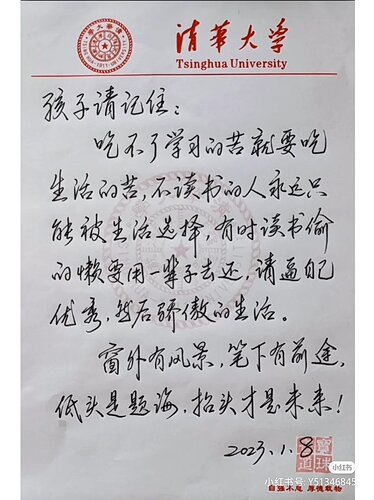 清華大学
Tsinghua University
孩子请记住：
吃不了学习的苦就要吃
生活的苦，不读书的人永远只
能被生活选择，有时读书偷
的懒要用一辈子去还，请逼自己
优秀，然后骄傲的生活。
窗外有风景，笔下有前途，
低头是题海，抬头才是未来！
2023.1.8
自强不息 厚德载物
小红书
小红书号